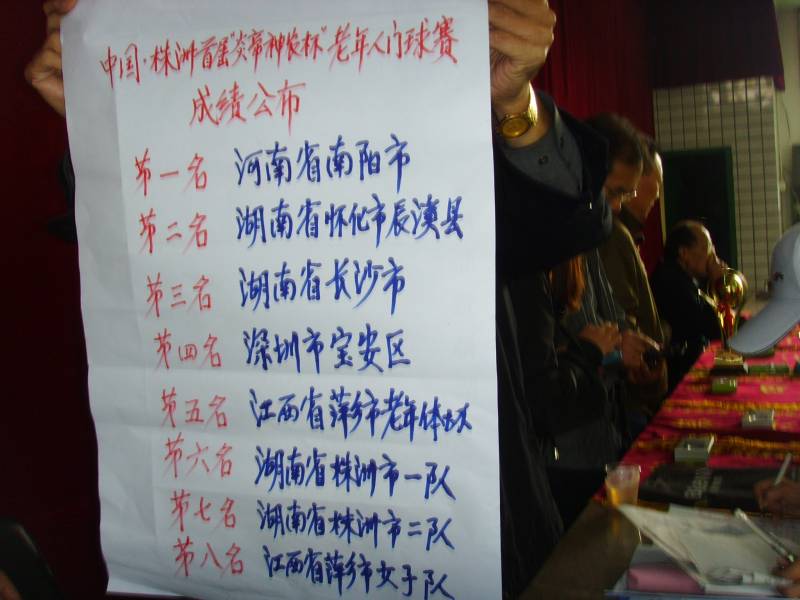 中国·株洲首届"炎帝神农杯"老年人门球赛
成绩公布
第一名 河南省南阳市
第二名 湖南省怀化市辰溪县
第三名 湖南省长沙市
第四名 深圳市宝安区
第五名 江西省萍乡市老年体协
第六名 湖南省株洲市一队
第七名 湖南省株洲市二队
第八名 江西省萍乡市女子队